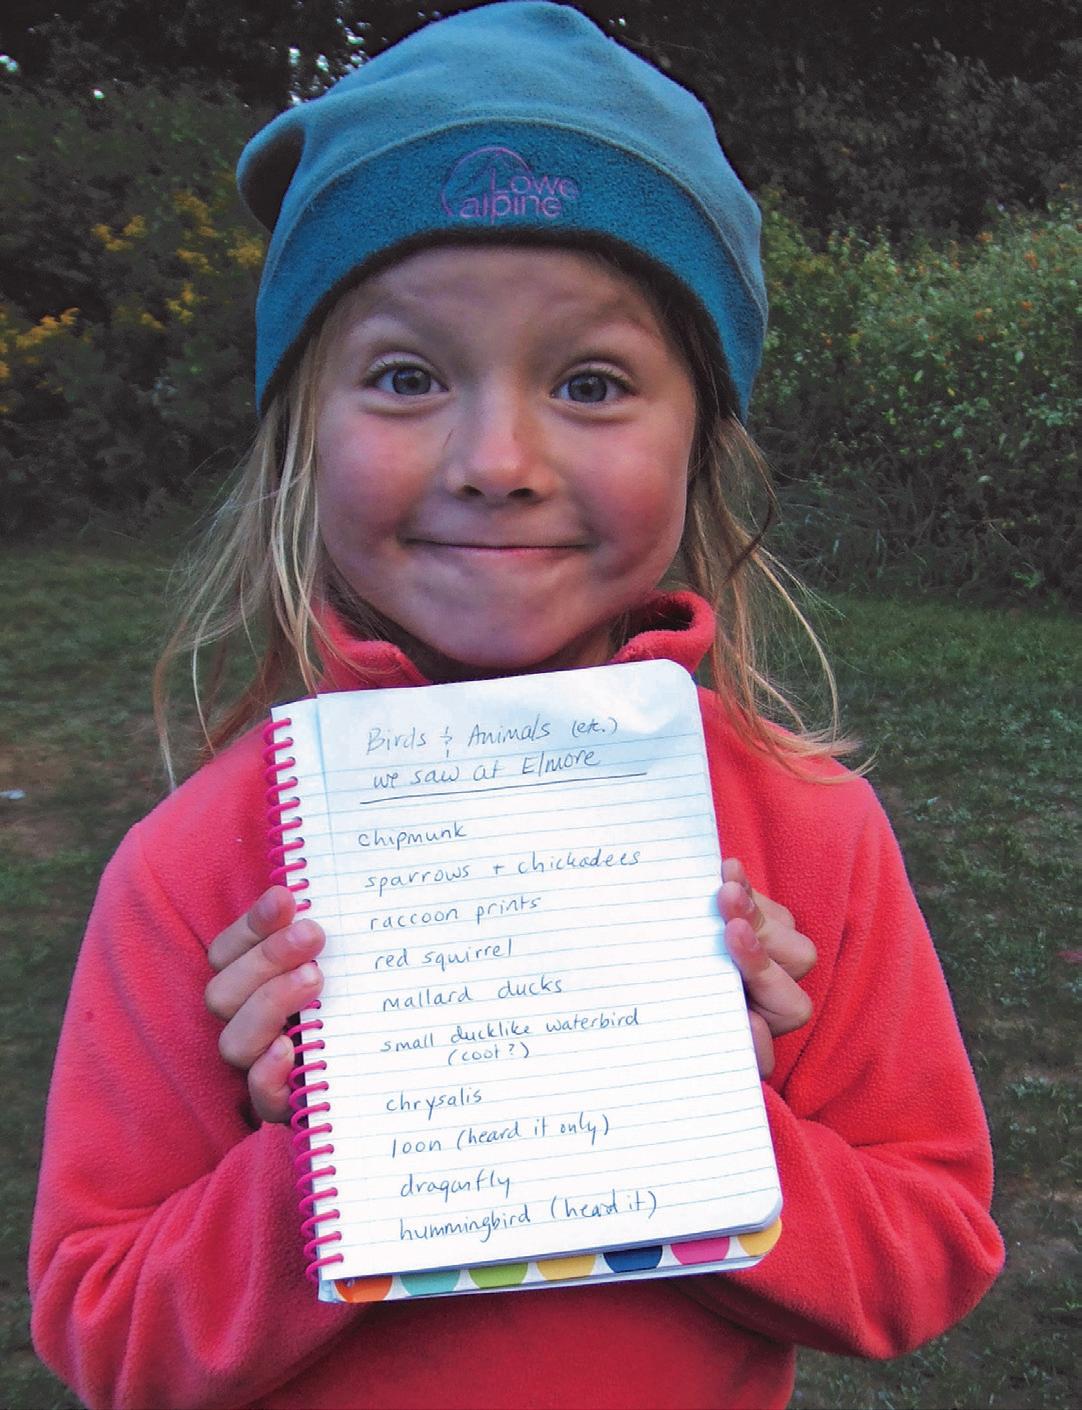 Lowe
alpine
Birds & Animals (etc.)
we saw at Elmore
chipmunk
sparrows + chickadees
raccoon prints
red squirrel
mallard ducks
small ducklike waterbird
(coot?)
chrysalis
loon (heard it only)
dragonfly
hummingbird (heard it)